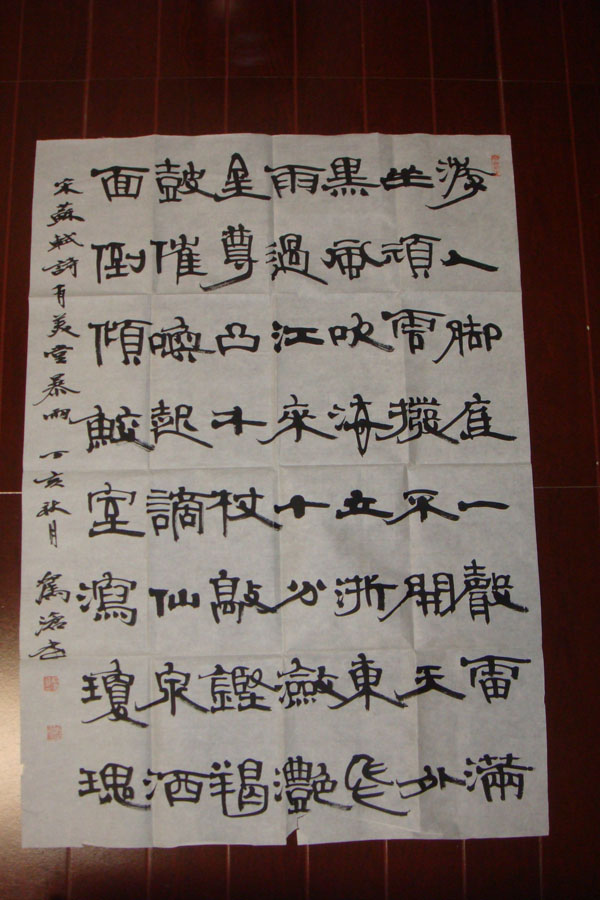 游人脚底一聲雷滿
坐頑雲撥不開天外
黑風吹海立浙東飛
雨過江來十分瀲灧
金尊凸千杖敲鏗羯
鼓催喚起謫仙泉洒
面倒傾鮫室瀉瓊瑰
宋蘇軾詩有美堂暴雨 丁亥秋月 书